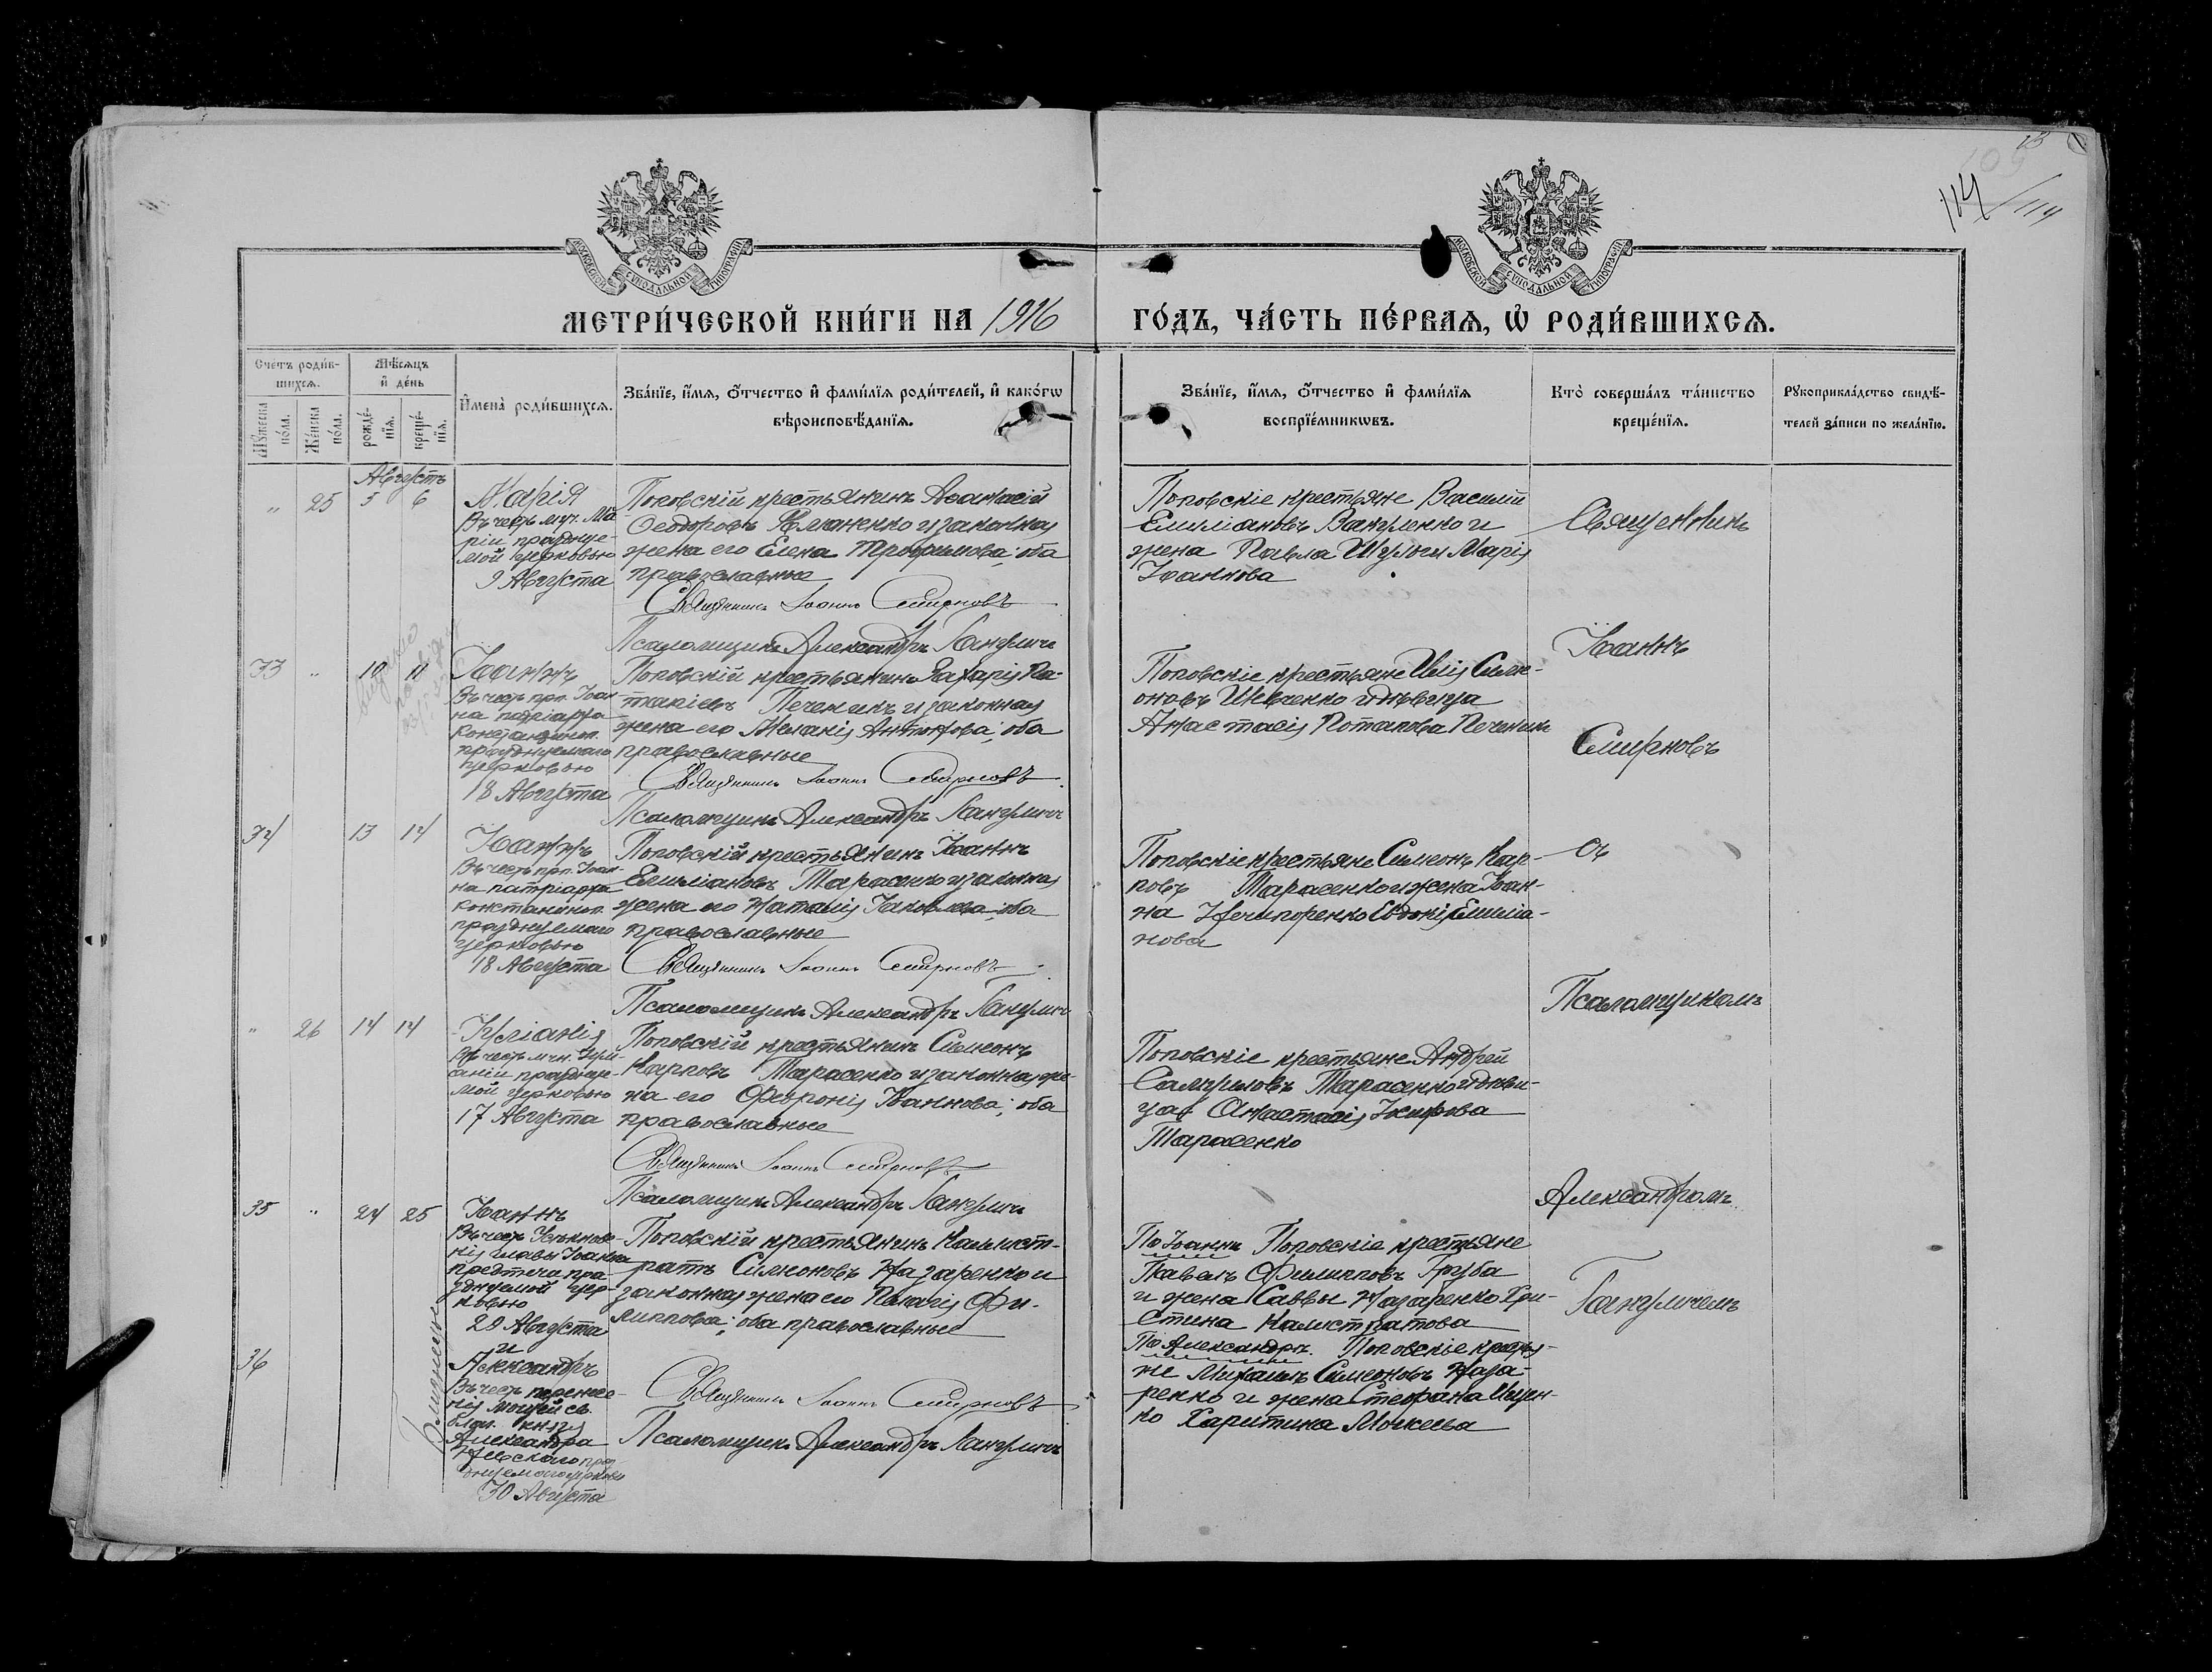 114/114
МОСКОВСКОЙ СУНОДАЛЬНОЙ ТИПОГРАФІИ
МОСКОВСКОЙ СУНОДАЛЬНОЙ ТИПОГРАФІИ
МЕТРИ́ЧЕСКОЙ КНИ́ГИ НА 1916
ГО́ДЪ, ЧА́СТЬ ПЕ́РВАѦ, Ѡ РОДИ́ВШИХСѦ.
Счетъ роди́в-
шихсѧ.
Мꙋ́жеска по́ла.
Же́нска по́ла.
Мѣ́сѧцъ
и҆ де́нь
рожде́-
нїѧ.
креще́-
нїѧ.
И҆мена̀ роди́вшихсѧ.
Зва́нїе, и҆́мѧ, ѻ҆́тчество и҆ фами́лїѧ роди́телей, и҆ како́гѡ
вѣроисповѣ́данїѧ.
Зва́нїе, и҆́мѧ, ѻ҆́тчество и҆ фами́лїѧ
воспрїе́мникѡвъ.
Кто̀ соверша́лъ та́инство
креще́нїѧ.
Рꙋкоприкла́дство свидѣ́-
телей за́писи по жела́нїю.
Августъ
" 25 5 6
Марія
Въ честь муч. Ма-
ріи праздуе-
мой церковью
9 Августа
Поповскій крестьянинъ Аѳанасій
Ѳеодоровъ Емоненко и законная
жена его Елена Трофимова; оба
православные
Священникъ Іоаннъ Смирновъ
Псаломщикъ Александръ
Поповскіе крестьяне Василій
Емиліановъ Вакуленко и
жена Павла Шульги Марія
Іоаннова
Священникъ
33 " 10 11
Іоаннъ
Въ честь прп. Іоан-
на патріарха
Константиноп.
празднуемаго
церковью
18 Августа
Поповскій крестьянинъ Захарія По-
тапіевъ Печеникъ и законная
жена его Меланія Антонова; оба
православные
Священникъ Іоаннъ Смирновъ
Псаломщикъ Александръ
Поповскіе крестьяне Илія Симе-
оновъ Шевченко и дѣвица
Анастасія Потапова Печеникъ
Іоаннъ
Смирновъ
34 13 14
Іоаннъ
Въ честь прп. Іоан-
на патріарха
Константиноп.
празднуемаго
церковью
18 Августа
Поповскій крестьянинъ Іоаннъ
Емиліановъ Тарасенко и законная
жена его Наталія Іаковлева; оба
православные
Священникъ Іоаннъ Смирновъ
Псаломщикъ Александръ
Поповскіе крестьяне Симеонъ Кар-
повъ Тарасенко и жена Іоан-
на Нечипоренко Евдокія Емилиа-
нова
съ
Псаломщикомъ
" 26 14 14
Іуліанія
Въ честь мчн. Іулі-
аніи праздуе-
мой церковью
17 Августа
Поповскій крестьянинъ Симеонъ
Карповъ Тарасенко и законная же-
на его Февронія Іоаннова; оба
православные
Священникъ Іоаннъ Смирновъ
Псаломщикъ Александръ
Поповскіе крестьяне Андрей
Самуиловъ Тарасенко и дѣви-
ца Анастасія Іосифова
Тарасенко
Александромъ
35 " 24 25
Іоаннъ
Въ честь Усѣкнове-
нія главы Іоанна
предтечи пра-
зднуемой цер-
ковью
29 Августа
Поповскій крестьянинъ Каллист-
ратъ Симеоновъ Назаренко и
законная жена его Пелагія Фи-
липпова; оба православные
По Іоаннѣ Поповскіе крестьяне
Павелъ Филипповъ Груба
и жена Саввы Назаренко Хри-
стина Калистратова
36
Близнецы
и
Александръ
Въ честь перенесе-
нія мощей св.
благ. князя
Александра
Невскаго пра-
зднуемаго церковью
30 Августа
Священникъ Іоаннъ Смирновъ
Псаломщикъ Александръ
По Александрѣ. Поповскіе крестья-
не Михаилъ Симеоновъ Наза-
ренко и жена Стефана Ищен-
ко Харитина Моисеева